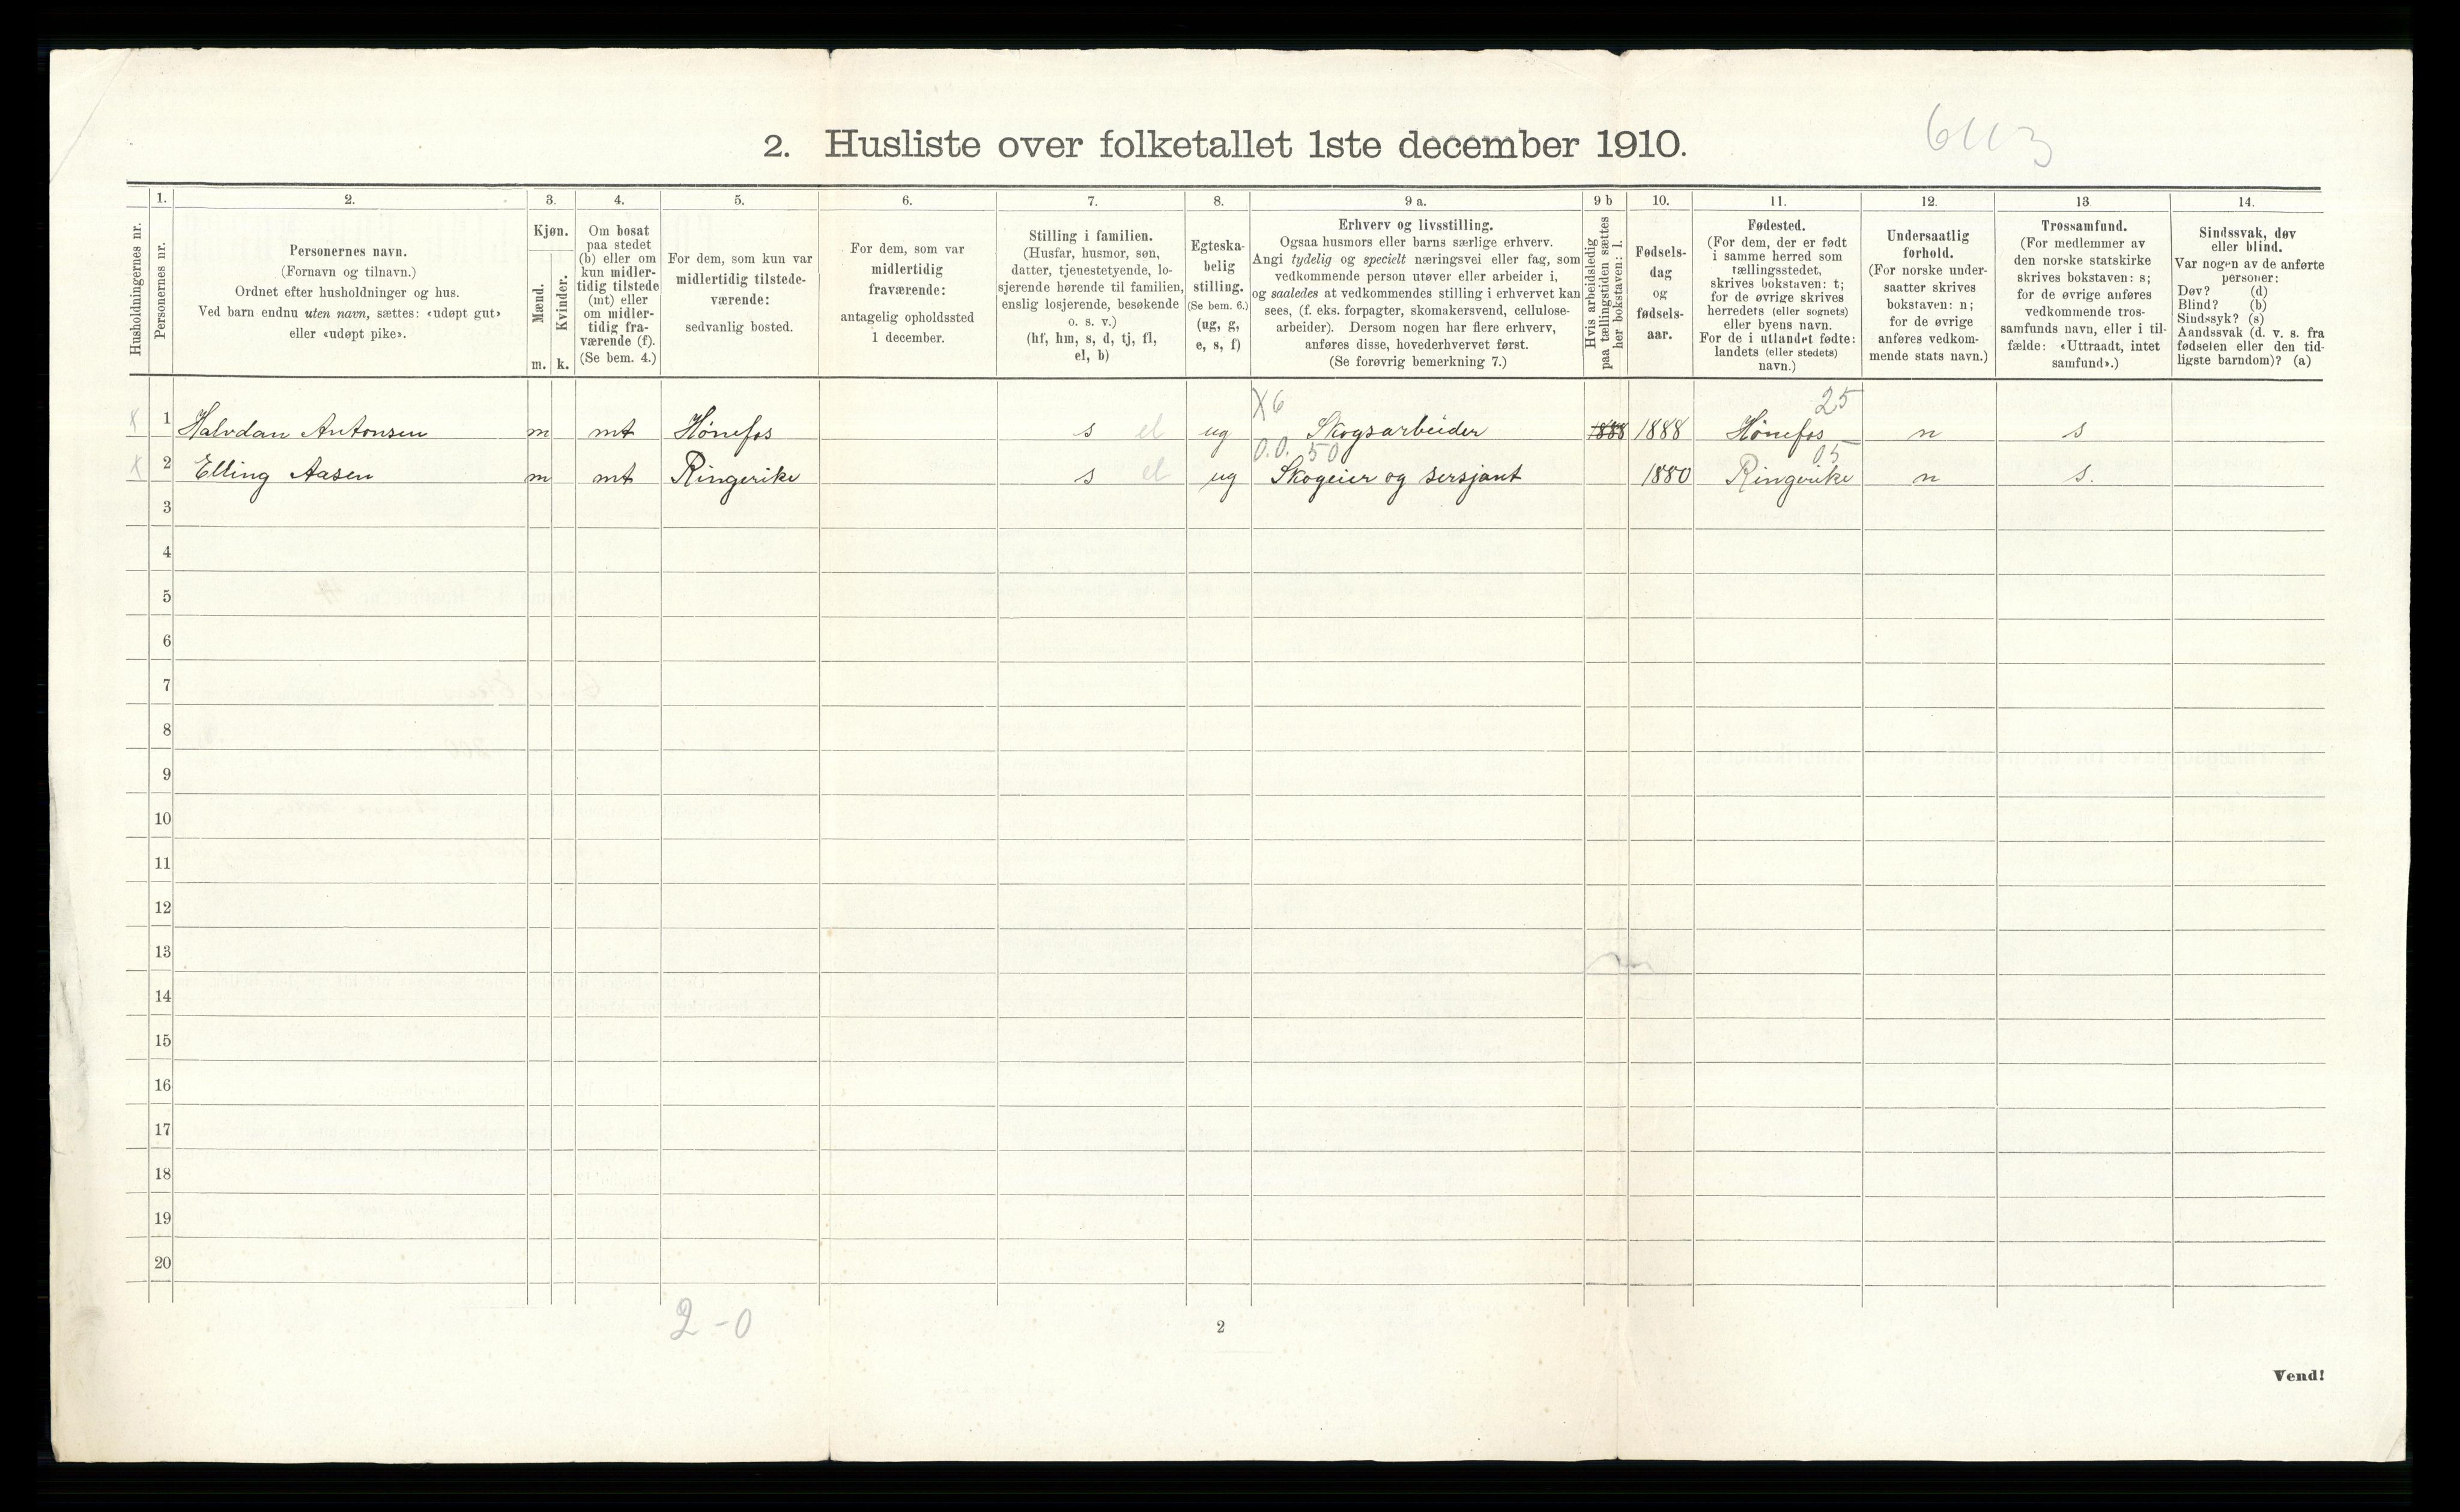 6113
2. Husliste over folketallet 1ste december 1910.
Husholdningernes nr.
1.
Personernes nr.
2.
Personernes navn.
(Fornavn og tilnavn.)
Ordnet efter husholdninger og hus.
Ved barn endnu uten navn, sættes: «udøpt gut»
eller «udøpt pike».
3.
Kjøn.
Mænd.
m.
Kvinder.
k.
4.
Om bosat
paa stedet
(b) eller om
kun midler-
tidig tilstede
(mt) eller
om midler-
tidig fra-
værende (f).
(Se bem. 4.)
5.
For dem, som kun var
midlertidig tilstede-
værende:
sedvanlig bosted.
6.
For dem, som var
midlertidig
fraværende:
antagelig opholdssted
1 december.
7.
Stilling i familien.
(Husfar, husmor, søn,
datter, tjenestetyende, lo-
sjerende hørende til familien,
enslig losjerende, besøkende
o. s. v.)
(hf, hm, s, d, tj, fl,
el, b)
8.
Egteska-
belig
stilling.
(Se bem. 6.)
(ug, g,
e, s, f)
9 a.
Erhverv og livsstilling.
Ogsaa husmors eller barns særlige erhverv.
Angi tydelig og specielt næringsvei eller fag, som
vedkommende person utøver eller arbeider i,
og saaledes at vedkommendes stilling i erhvervet kan
sees, (f. eks. forpagter, skomakersvend, cellulose-
arbeider). Dersom nogen har flere erhverv,
anføres disse, hovederhvervet først.
(Se forøvrig bemerkning 7.)
9 b
Hvis arbeidsledig
paa tællingstiden sættes
her bokstaven: l.
10.
Fødsels-
dag
og
fødsels-
aar.
11.
Fødested.
(For dem, der er født
i samme herred som
tællingsstedet,
skrives bokstaven: t;
for de øvrige skrives
herredets (eller sognets)
eller byens navn.
For de i utlandet fødte:
landets (eller stedets)
navn.)
12.
Undersaatlig
forhold.
(For norske under-
saatter skrives
bokstaven: n;
for de øvrige
anføres vedkom-
mende stats navn.)
13.
Trossamfund.
(For medlemmer av
den norske statskirke
skrives bokstaven: s;
for de øvrige anføres
vedkommende tros-
samfunds navn, eller i til-
fælde: «Uttraadt, intet
samfund».)
14.
Sindssvak, døv
eller blind.
Var nogen av de anførte
personer:
Døv? (d)
Blind? (b)
Sindssyk? (s)
Aandssvak (d. v. s. fra
fødselen eller den tid-
ligste barndom)? (a)
X6 25
x 1 Halvdan Antonsen m mt Hønefos s el ug Skogsarbeider 1888 1888 Hønefos n s
0.0. 50 05
x 2 Elling Aasen m mt Ringerike s el ug Skogeier og sersjant 1880 Ringerike n s.
3
4
5
6
7
8
9
10
11
12
13
14
15
16
17
18
19
20
2-0
2
Vend!